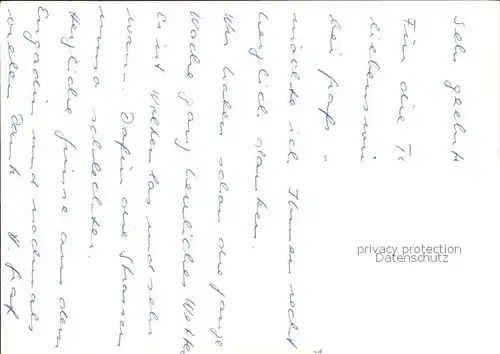 Sehr geehrte
Für die
liebenswü
bei
möchte ich Ihnen recht
herzlich danken.
Wir haben schon die ganze
Woche ganz herrliches Wetter
Es ist wolkenlos und sehr
warm. Dafür die Strassen
umso schlechter.
Herzliche Grüsse aus dem
Engadin und nochmals
vielen Dank
privacy protection
Datenschutz